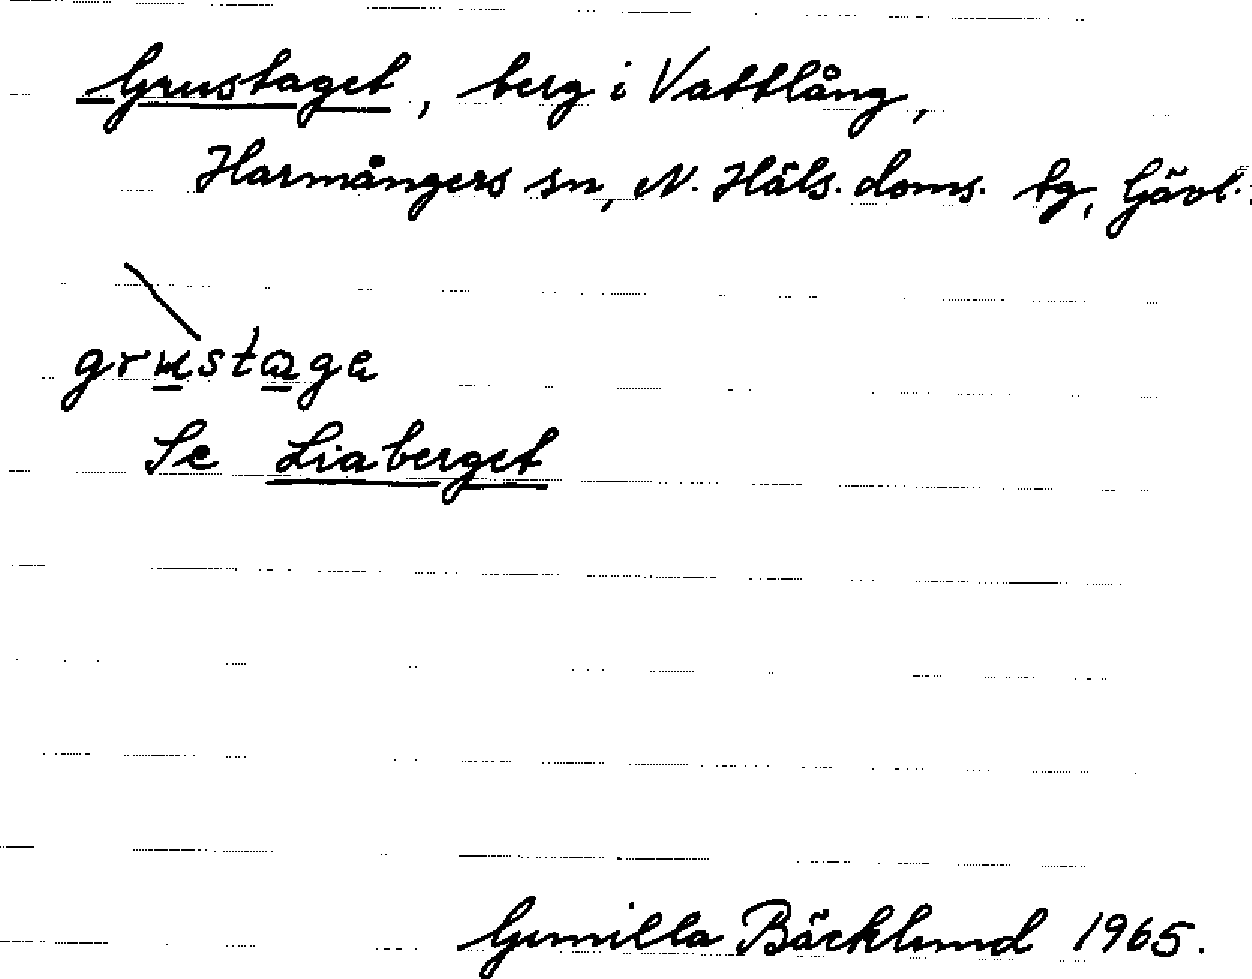 Grustaget, berg i Vattlång,
Harmångers sn, N. Häls. doms. tg, Gävl.
grustage
Se Liaberget
Gunilla Bäcklund 1965.